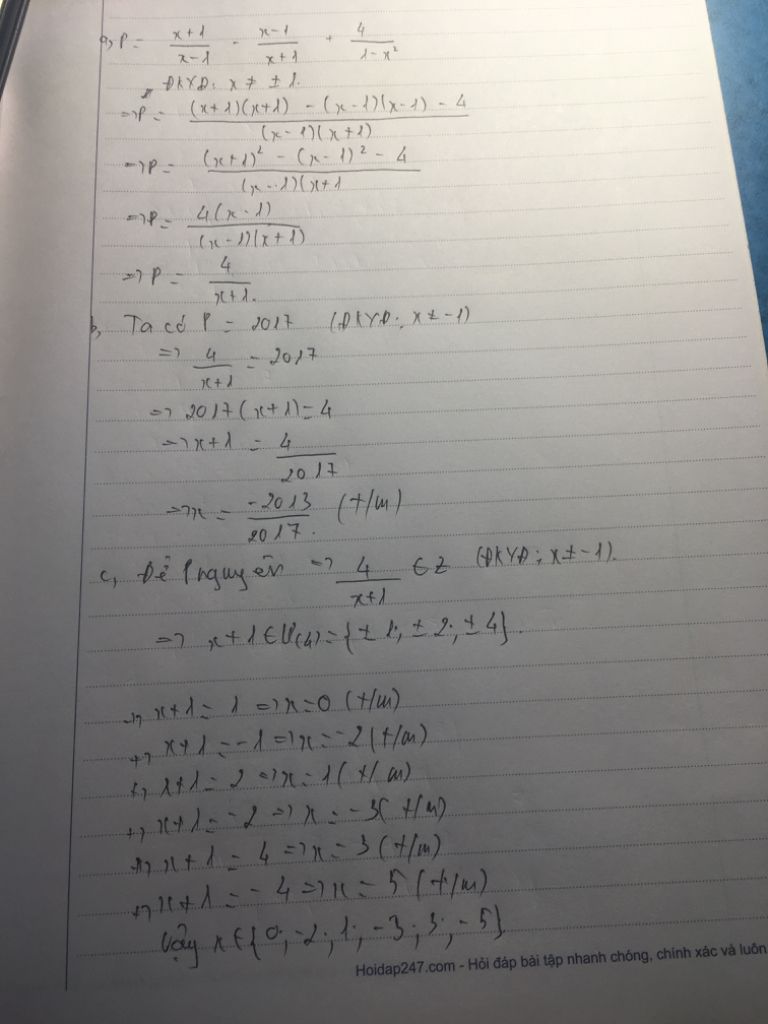 a, P = \frac{x+1}{x-1} - \frac{x-1}{x+1} + \frac{4}{1-x^2}
ĐKXĐ: x ≠ ±1.
=> P = \frac{(x+1)(x+1) - (x-1)(x-1) - 4}{(x-1)(x+1)}
=> P = \frac{(x+1)^2 - (x-1)^2 - 4}{(x-1)(x+1}
=> P = \frac{4(x-1)}{(x-1)(x+1)}
=> P = \frac{4}{x+1}.
b, Ta có P = 2017 (ĐKXĐ: x ≠ -1)
=> \frac{4}{x+1} = 2017
=> 2017(x+1) = 4
=> x+1 = \frac{4}{2017}
=> x = \frac{-2013}{2017}. (t/m)
c, Để P nguyên => \frac{4}{x+1} ∈ Z (ĐKXĐ: x ≠ -1).
=> x+1 ∈ Ư(4) = {±1; ±2; ±4}.
+, x+1 = 1 => x = 0 (t/m)
+, x+1 = -1 => x = -2 (t/m)
+, x+1 = 2 => x = 1 (t/m)
+, x+1 = -2 => x = -3 (t/m)
+, x+1 = 4 => x = 3 (t/m)
+, x+1 = -4 => x = 5 (t/m)
Vậy x ∈ {0; -2; 1; -3; 3; -5}
Hoidap247.com - Hỏi đáp bài tập nhanh chóng, chính xác và luôn